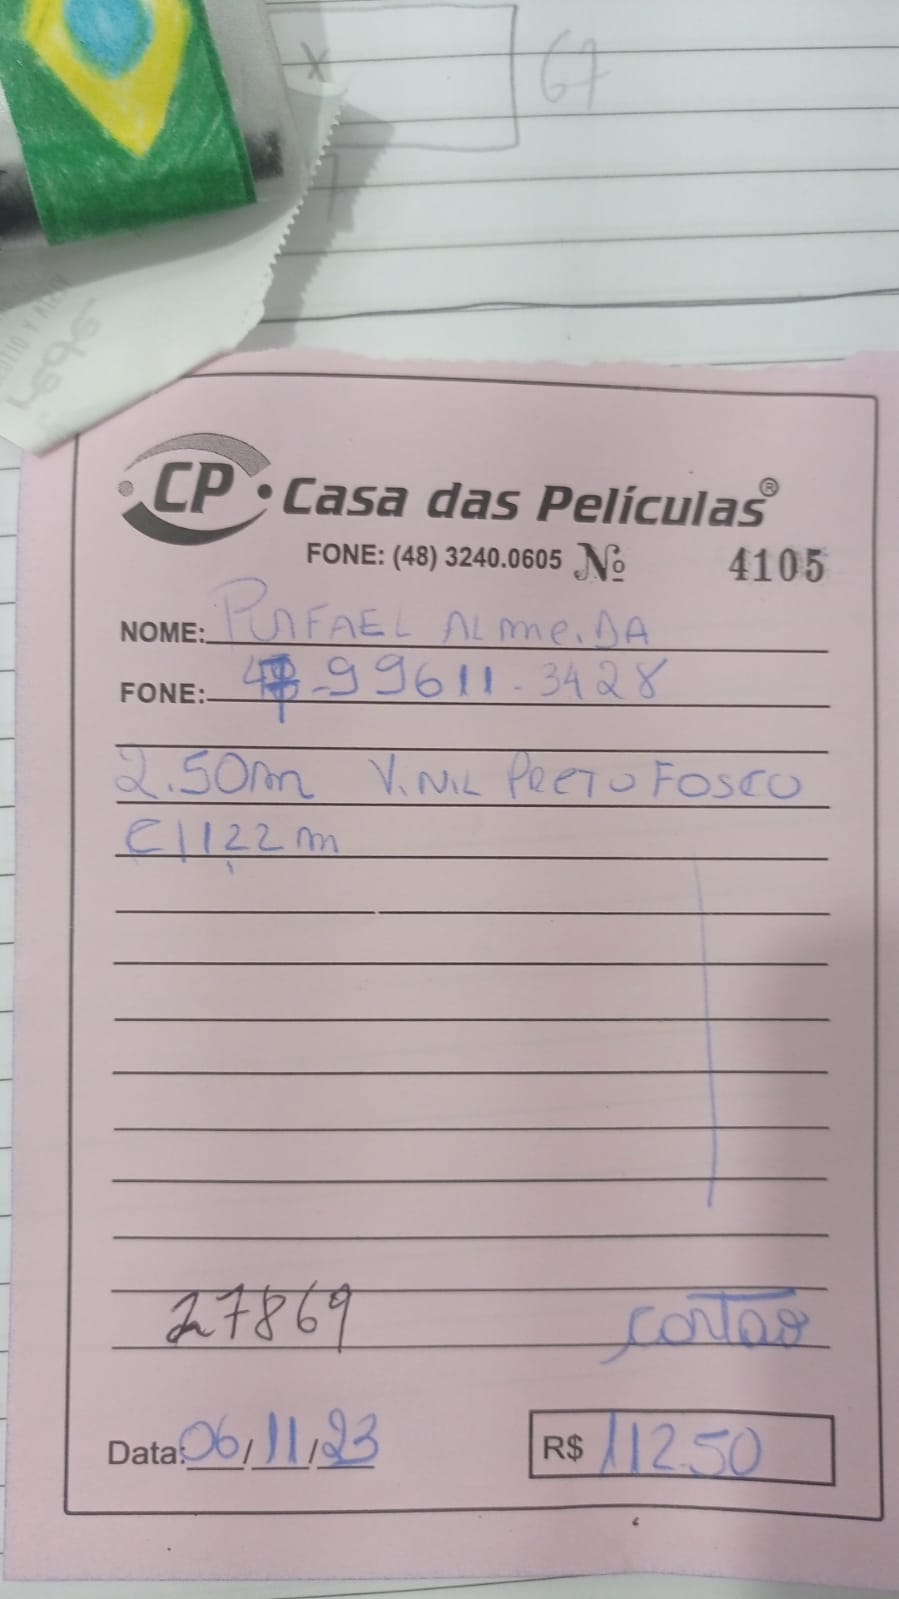 X
67
CP • Casa das Películas®
FONE: (48) 3240.0605 Nº 4105
NOME: RAFAEL ALmeiDA
FONE: 48-99611-3428
2.50m ViNiL PRETO FOSCO
C/1,22m
27869 cartao
Data: 06/11/23 R$ 112.50